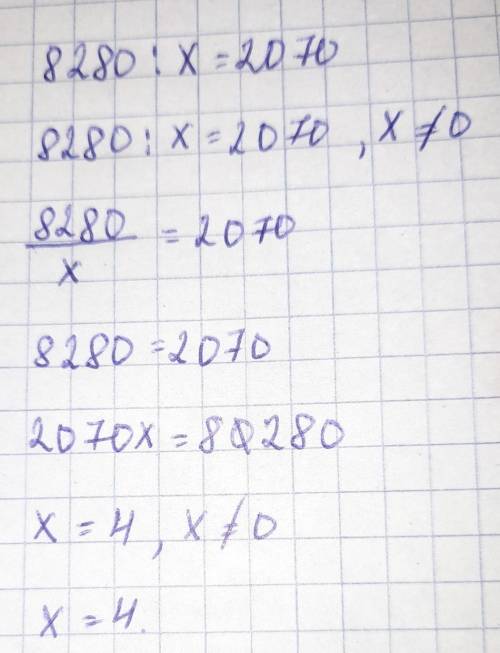 8280 : x = 2070
8280 : x = 2070 , x ≠ 0
8280/x = 2070
8280 = 2070
2070x = 8280
x = 4 , x ≠ 0
x = 4.